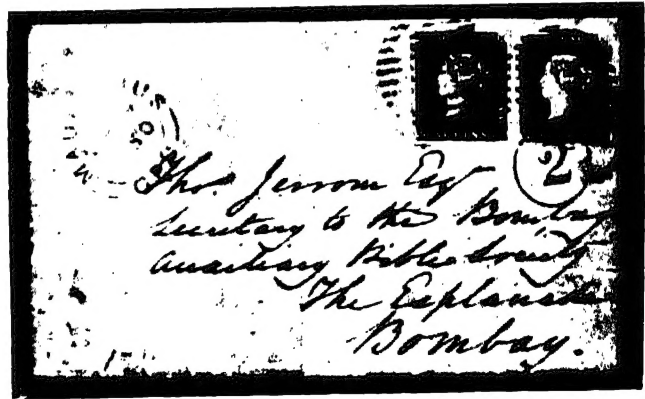 2
Thos. Jerrom Esqr
Secretary to the Bombay
Auxiliary Bible Society
The Esplanade
Bombay.